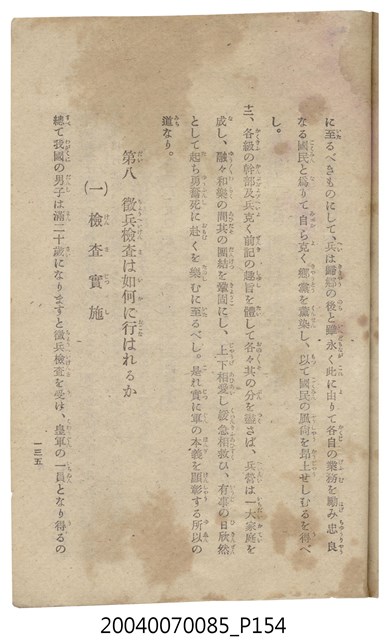 に至るべきものにして、兵は歸鄕の後と雖永く此に由りて各自の業務を勵み忠良
なる國民と爲りて自ら克く鄕黨を薰染し、以て國民の風尙を昂上せしむるを得べ
し。
十二、各級の幹部及兵克く前記の趣旨を體して各々其の分を盡さば、兵營は一大家庭を
成し、融々和樂の間其の團結を鞏固にし、上下相愛し緩急相救ひ、有事の日欣然
として起ち勇奮死に赴くを樂むに至るべし。是れ實に軍の本義を顯彰する所以の
道なり。
第八 徵兵檢查は如何に行はれるか
(一) 檢查實施
總て我國の男子は滿二十歲になりますと徵兵檢查を受け、皇軍の一員となり得るの
一三五
20040070085_P154